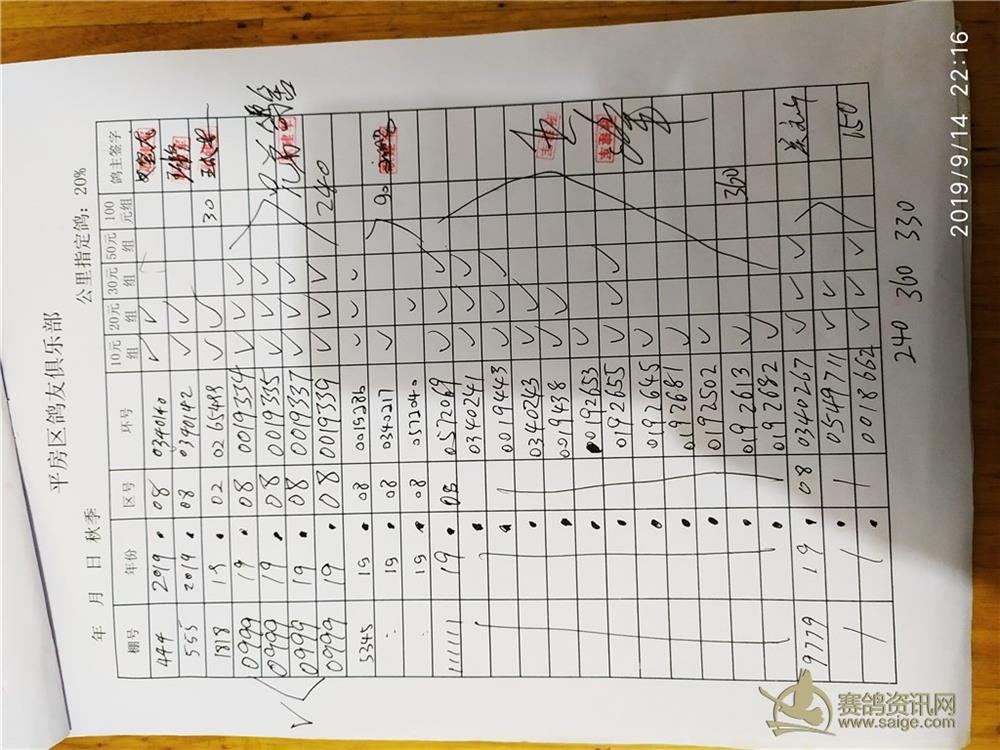 平房区鸽友俱乐部
年 月 日 秋季 公里指定鸽: 20%
棚号 年份 区号 环号 10元组 20元组 30元组 50元组 100元组 鸽主签字
444 2019 08 0340140 ✓ ✓
555 2019 08 0340142 ✓ ✓
1818 19 02 0265488 ✓ ✓ 30
0999 19 08 0019334 ✓ ✓ ✓
0999 19 08 0019335 ✓ ✓ ✓
0999 19 08 0019337 ✓ ✓ ✓
0999 19 08 0019339 ✓ ✓ ✓ 240
5345 19 08 0019286 ✓ ✓ ✓
19 08 0340217 ✓ 90
19 08 ✓ ✓
111111 19 08 0572069 ✓ ✓ ✓
0340241 ✓ ✓ ✓
0019443 ✓ ✓ ✓
0340243 ✓ ✓
0019438 ✓ ✓
0192653 ✓
0192655 ✓ ✓ ✓
0192645 ✓
0192681 ✓
0192502
0192613 ✓ 360
0192682 ✓
9779 19 08 0340267 ✓ ✓ ✓
0549711 ✓ ✓
0018662 ✓ ✓ ✓ 150
240 360 330
2019/9/14 22:16
赛鸽资讯网
www.saige.com